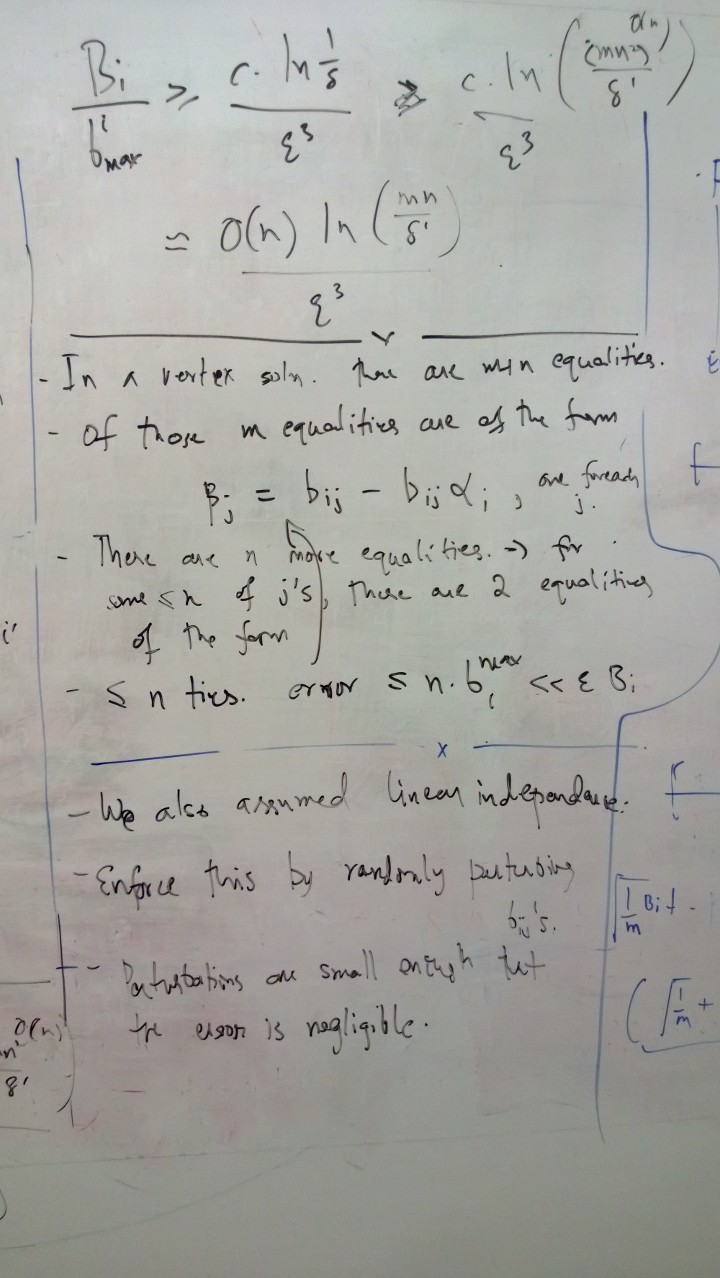 B_i / b_i^max ≥ c. ln 1/δ / ε³ ≥ c. ln ( (mn²)^O(n) / δ' ) / ε³
≈ O(n) ln ( mn / δ' ) / ε³
- In a vertex soln. there are m+n equalities.
- Of those m equalities are of the form
β_j = b_ij - b_ij α_i , one foreach j.
- There are n more equalities. → for
some ≤ n of j's, there are 2 equalities
of the form
- ≤ n ties. error ≤ n. b_i^max << ε B_i
x
- We also assumed linear independence.
- Enforce this by randomly perturbing
b_ij's.
- Perturbations are small enough that
the error is negligible.
i'
O(n)
8'
√1/m B_i + -
( √1/m +